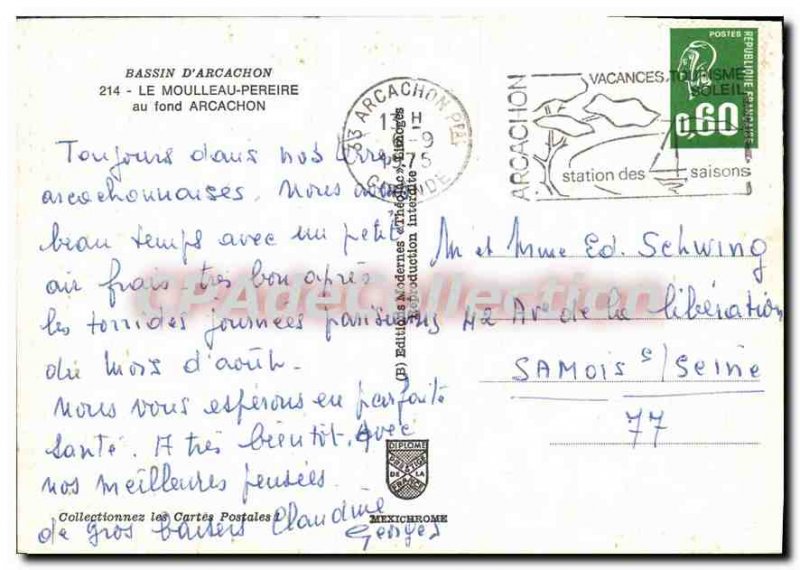 BASSIN D'ARCACHON
214 - LE MOULLEAU-PEREIRE
au fond ARCACHON
Toujours dans nos terres
arcachonnaises. Nous avons
beau temps avec un petit
air frais très bon après
les torrides journées parisiennes
du mois d'août.
Nous vous espérons en parfaite
santé. A très bientôt, avec
nos meilleures pensées.
de gros baisers Claudine
Georges
Collectionnez les Cartes Postales !
(B) Editions Modernes « Théojac », Limoges
Reproduction interdite
DIPLOME
PRESTIGE
DE LA
FRANCE
MEXICHROME
33 ARCACHON PPAL
13 H
-9
1975
GIRONDE
ARCACHON
VACANCES, TOURISME
SOLEIL
station des saisons
POSTES
REPUBLIQUE FRANCAISE
0,60
M et Mme Ed. Schwing
42 Av. de la libération
SAMOIS s/ Seine
77
CPAdeCollection